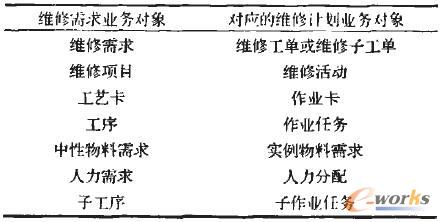 维修需求业务对象 对应的维修计划业务对象
维修需求 维修工单或维修子工单
维修项目 维修活动
工艺卡 作业卡
工序 作业任务
中性物料需求 实例物料需求
人力需求 人力分配
子工序 子作业任务
e-works